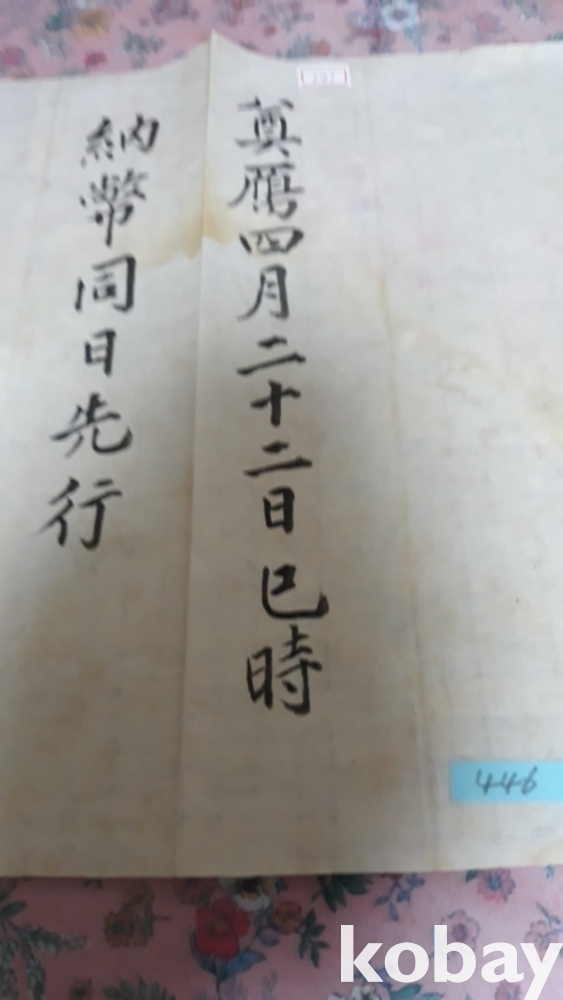 奠鴈四月二十二日巳時
納幣同日先行
446
kobay